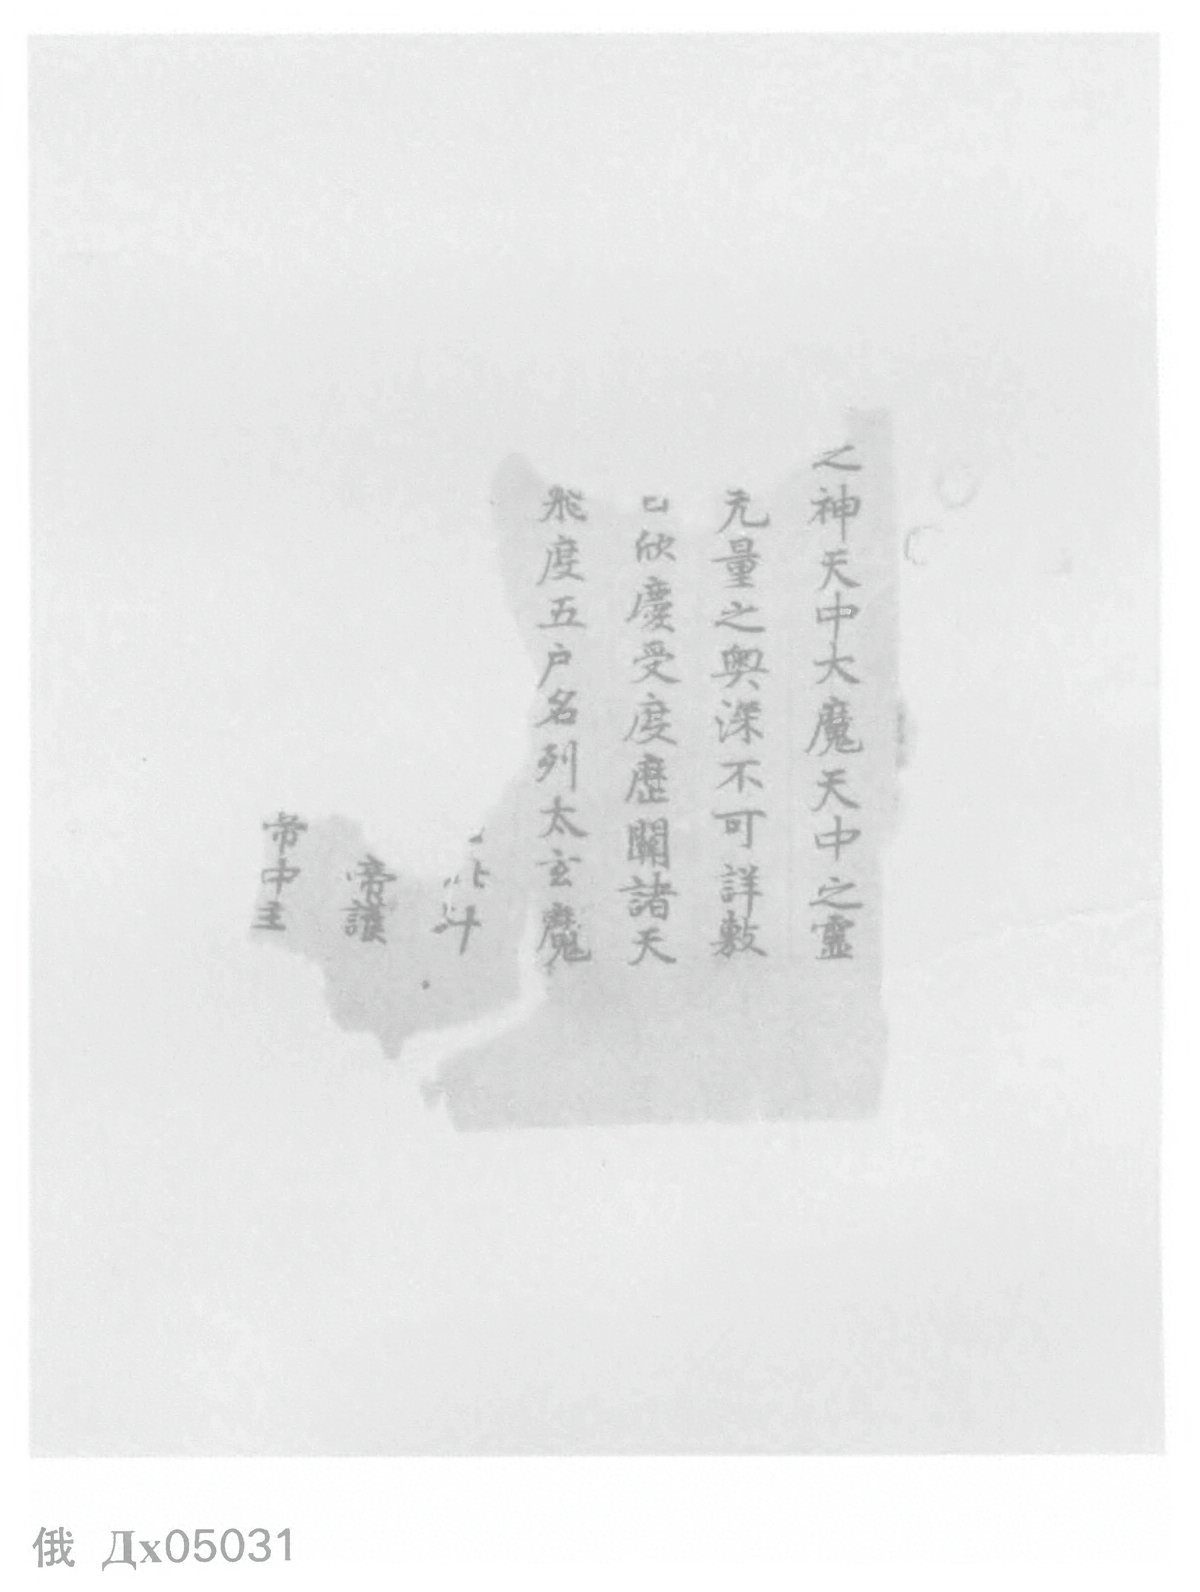 之神天中大魔天中之靈
无量之奧深不可詳敷
已欣慶受度歷關諸天
飛度五户名列太玄魔
斗
帝護
帝中主
俄 Дх05031